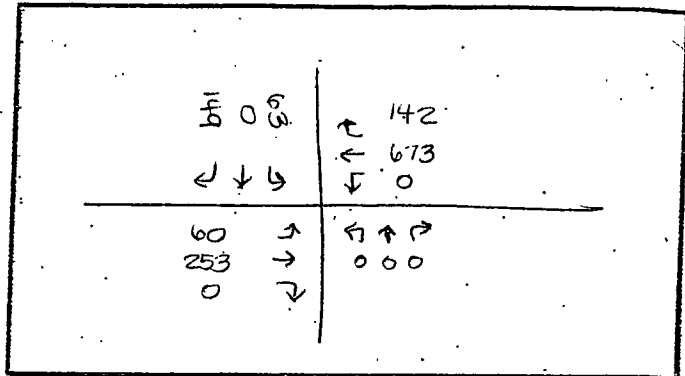 149 0 63
142
673
0
60
253
0
0 0 0